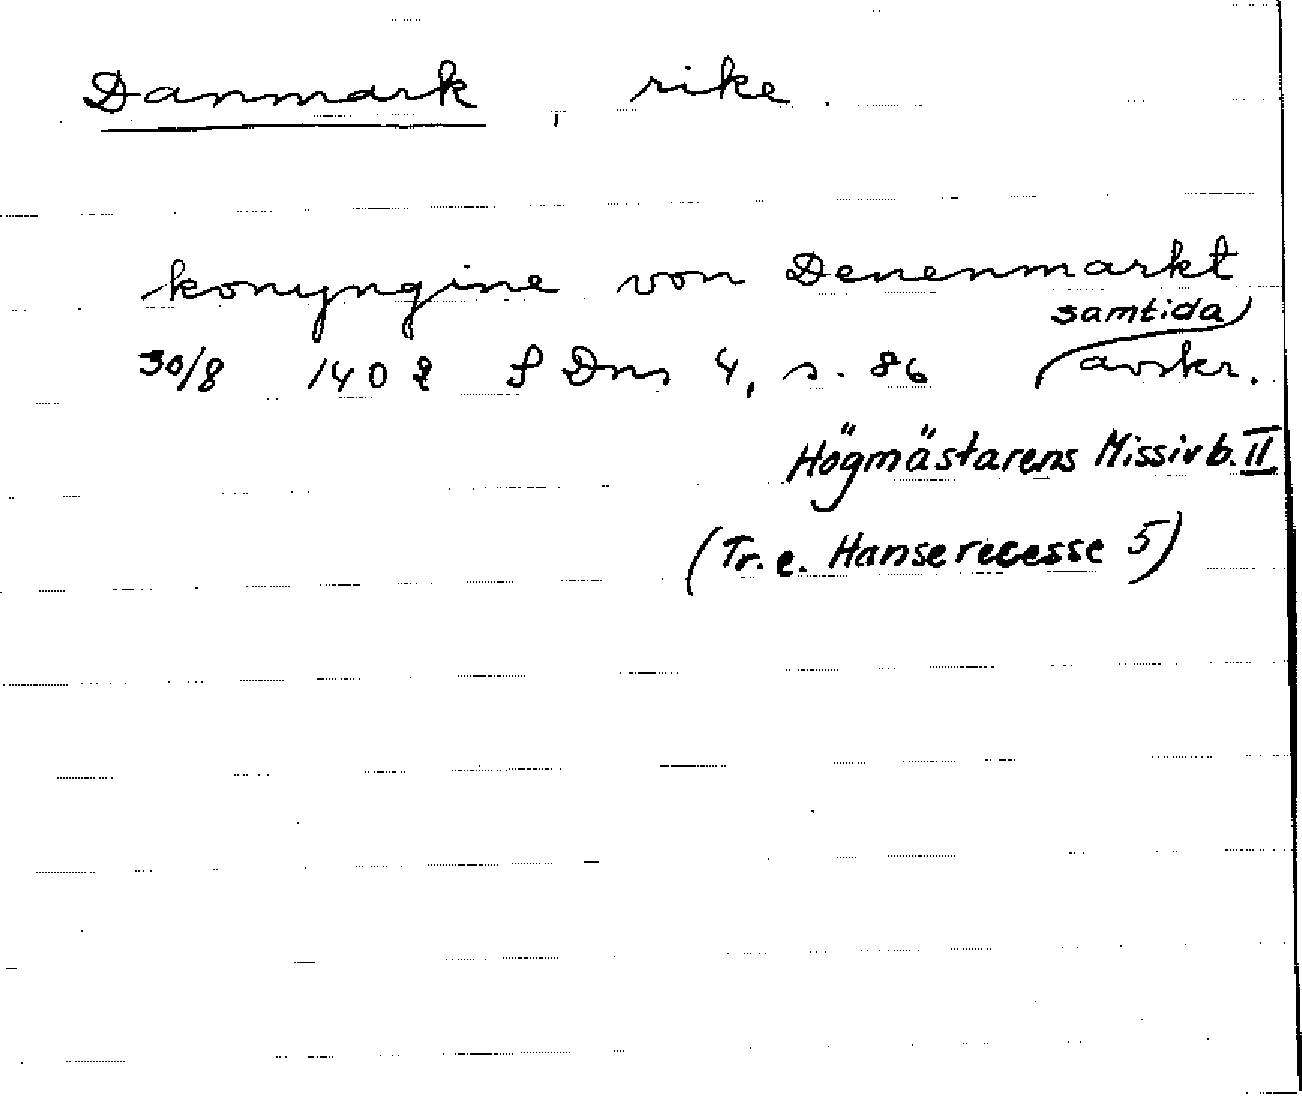 Danmark, rike
konyngine von Denenmarkt
samtida
30/8 1402 SDns 4, s. 86 avskr.
Högmästarens Missivb. II
(Tr. e. Hanserecesse 5)